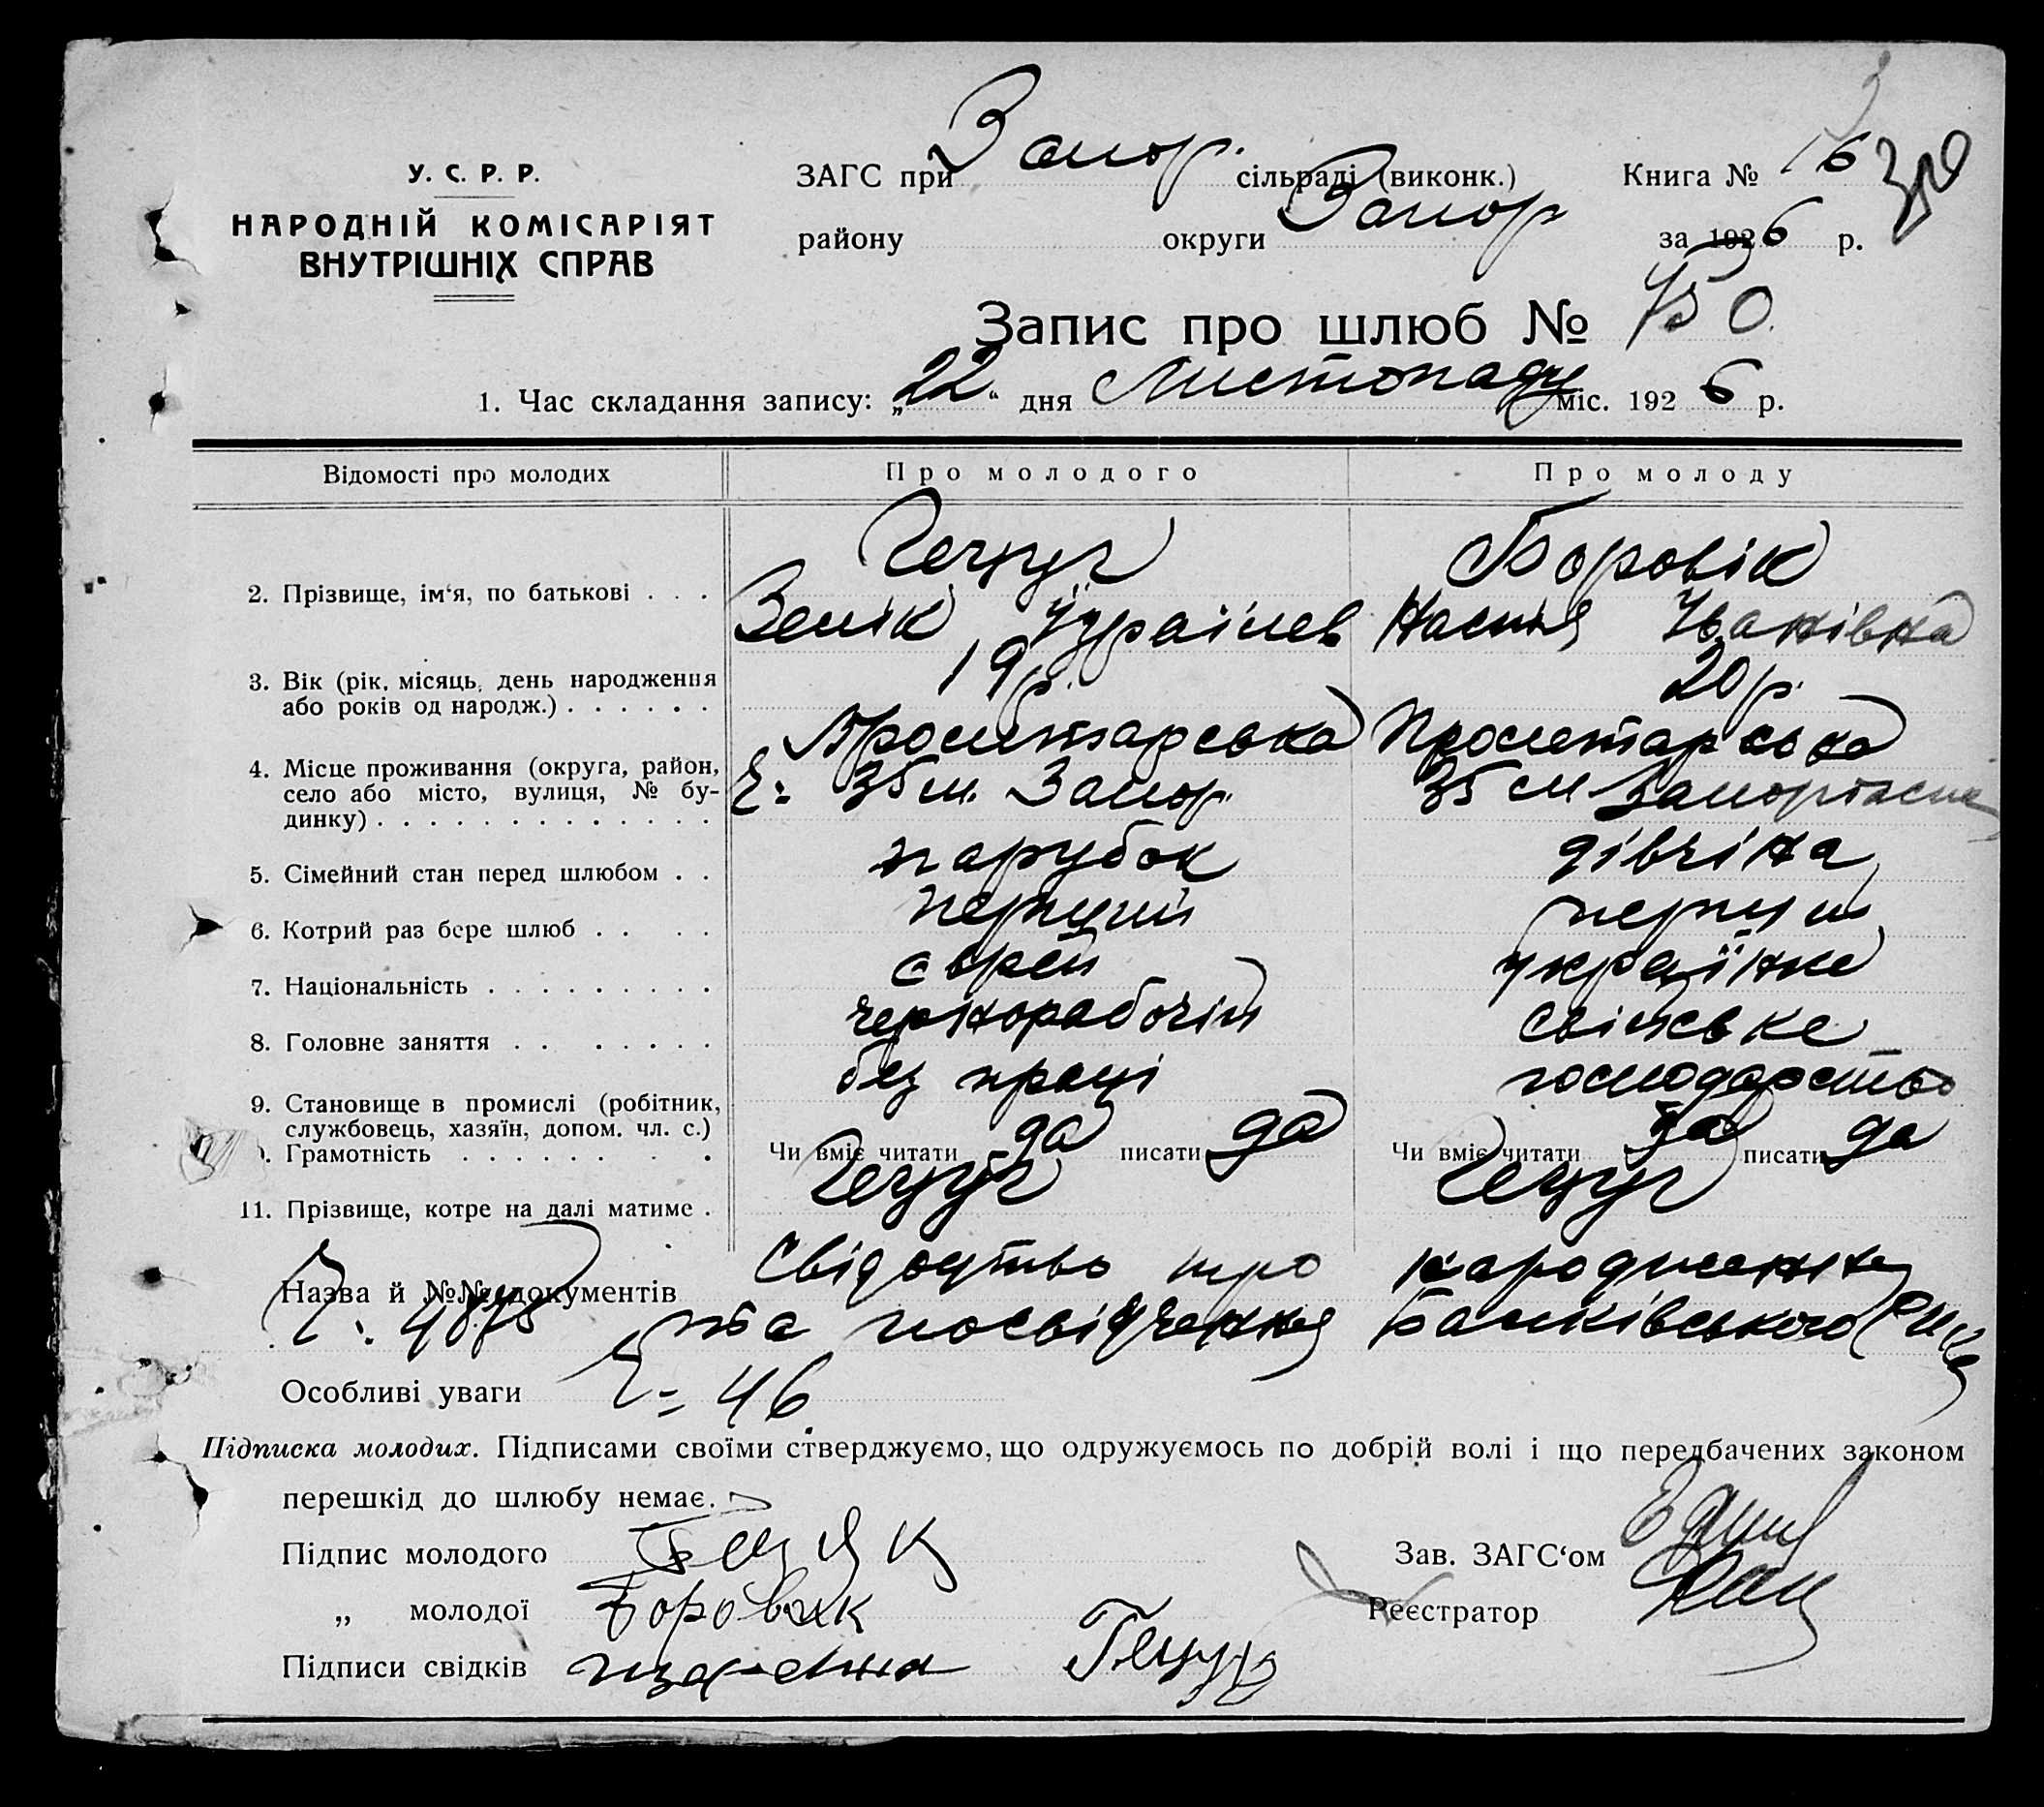 У. С. Р. Р.
НАРОДНІЙ КОМІСАРІЯТ
ВНУТРІШНІХ СПРАВ
ЗАГС при Запор. сільраді (виконк.) Книга № 16
району округи Запор за 1926 р.
Запис про шлюб № 750
1. Час складання запису: „22“ дня Листопаду міс. 1926 р.
Відомості про молодих Про молодого Про молоду
Гецуг Боровік
2. Прізвище, ім‘я, по батькові . . .
Зелік Ізраїлев Настья Іванівна
19 р. 20 р.
3. Вік (рік, місяць, день народження
або років од народж.) . . . . . .
Пролетарська Пролетарська
4. Місце проживання (округа, район,
село або місто, вулиця, № бу-
динку) . . . . . . . . . . . . .
35 м. Запор. 35 м
парубок дівчіна
5. Сімейний стан перед шлюбом . .
перший перший
6. Котрий раз бере шлюб . . . .
єврей українка
7. Національність . . . . . . . . .
чернорабочій сільське
8. Головне заняття . . . . . . . .
без праці господарство
9. Становище в промислі (робітник,
службовець, хазяїн, допом. чл. с.)
Грамотність . . . . . . . . Чи вміє читати да писати да Чи вміє читати да писати да
Гецуг Гецуг
11. Прізвище, котре на далі матиме .
Свідоцтво про народження
Назва й №№ документів
та посвідчення
Особливі уваги 46
Підписка молодих. Підписами своїми стверджуємо, що одружуємось по добрій волі і що передбачених законом
перешкід до шлюбу немає.
Підпис молодого Зав. ЗАГС‘ом
„ молодої Боровик Реєстратор
Підписи свідків Гецуг